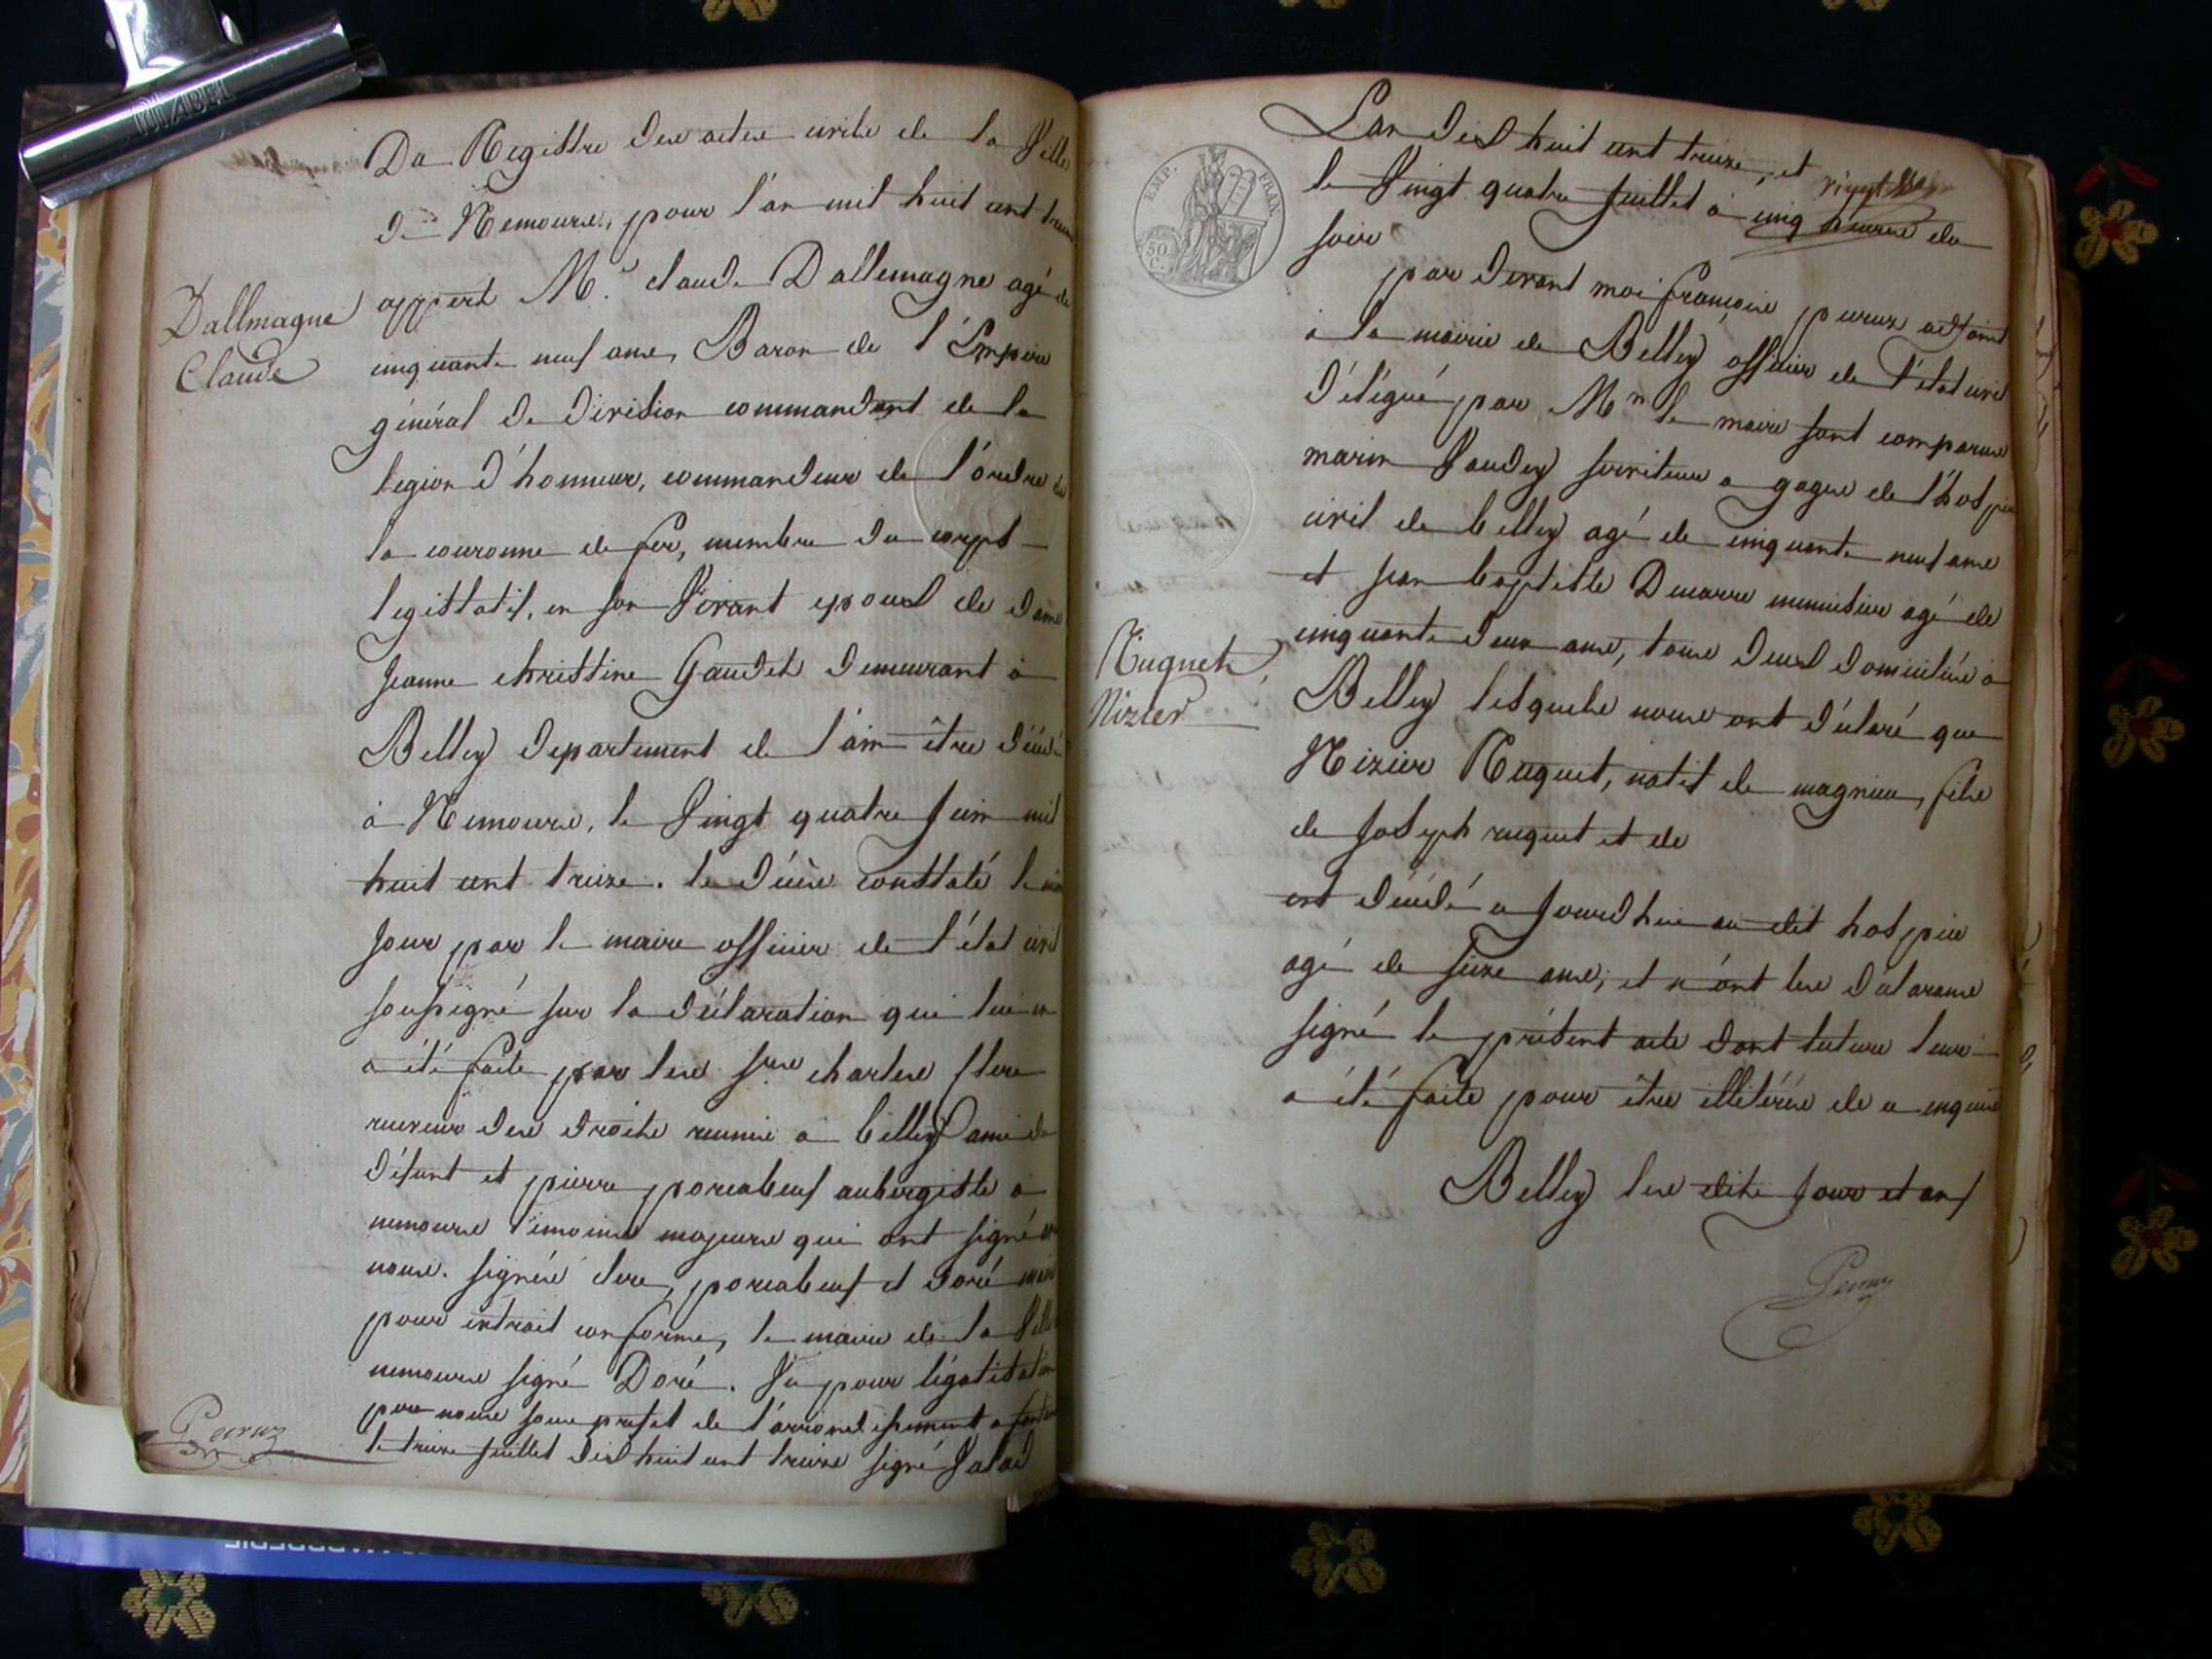 Du Registre des actes civils de la Ville
de Nemours, pour l'an mil huit cent treize
appert Mr. claude Dallemagne agé de
cinquante neuf ans, Baron de l'Empire
général de division commandant de la
legion d'honneur, commandeur de l'ordre de
la couronne de fer, membre du corps
legislatif, en son Vivant epoux de dame
Jeanne christine Gaudet demeurant à
Belley departement de l'ain être décédé
à Nemours, le Vingt quatre Juin mil
huit cent treize. le décès constaté le même
Jour par le maire officier de l'état civil
soussigné sur la déclaration qui lui en
a été faite par les Srs charles
receveur des droits reunis à belley ami du
défunt et pierre porcabeuf aubergiste à
nemours témoins majeurs qui ont signé
nous. signés porcabeuf et doré maire
pour extrait conforme, le maire de la Ville
nemours signé Doré. Vu pour légalisation
par nous sous prefet de l'arrondissement a
le treize Juillet dix huit cent treize signé
Dallmagne
Claude
Peruz
EMP. FRAN.
50 C.
L'an dix huit cent treize, et
le Vingt quatre Juillet à cinq heures du
soir
par devant moi françois peruz adjoint
à la mairie de Belley officier de l'état civil
délégué par Mr le maire sont comparus
marin Vaudey serviteur a gages de l'hospice
civil de belley agé de cinquante neuf ans
et jean baptiste Ducarre menuisier agé de
cinquante deux ans, tous deux domiciliés à
Belley lesquels nous ont déclaré que
Nizier Ruguet, natif de magnieu, fils
de Joseph ruguet et de
est décédé aujourdhui au dit hospice
agé de seize ans, et n'ont les déclarans
signé le présent acte dont lecture leur
a été faite pour être illitérés de ce enquis
Belley les dits Jour et an
Ruguet
Nizier
Peruz